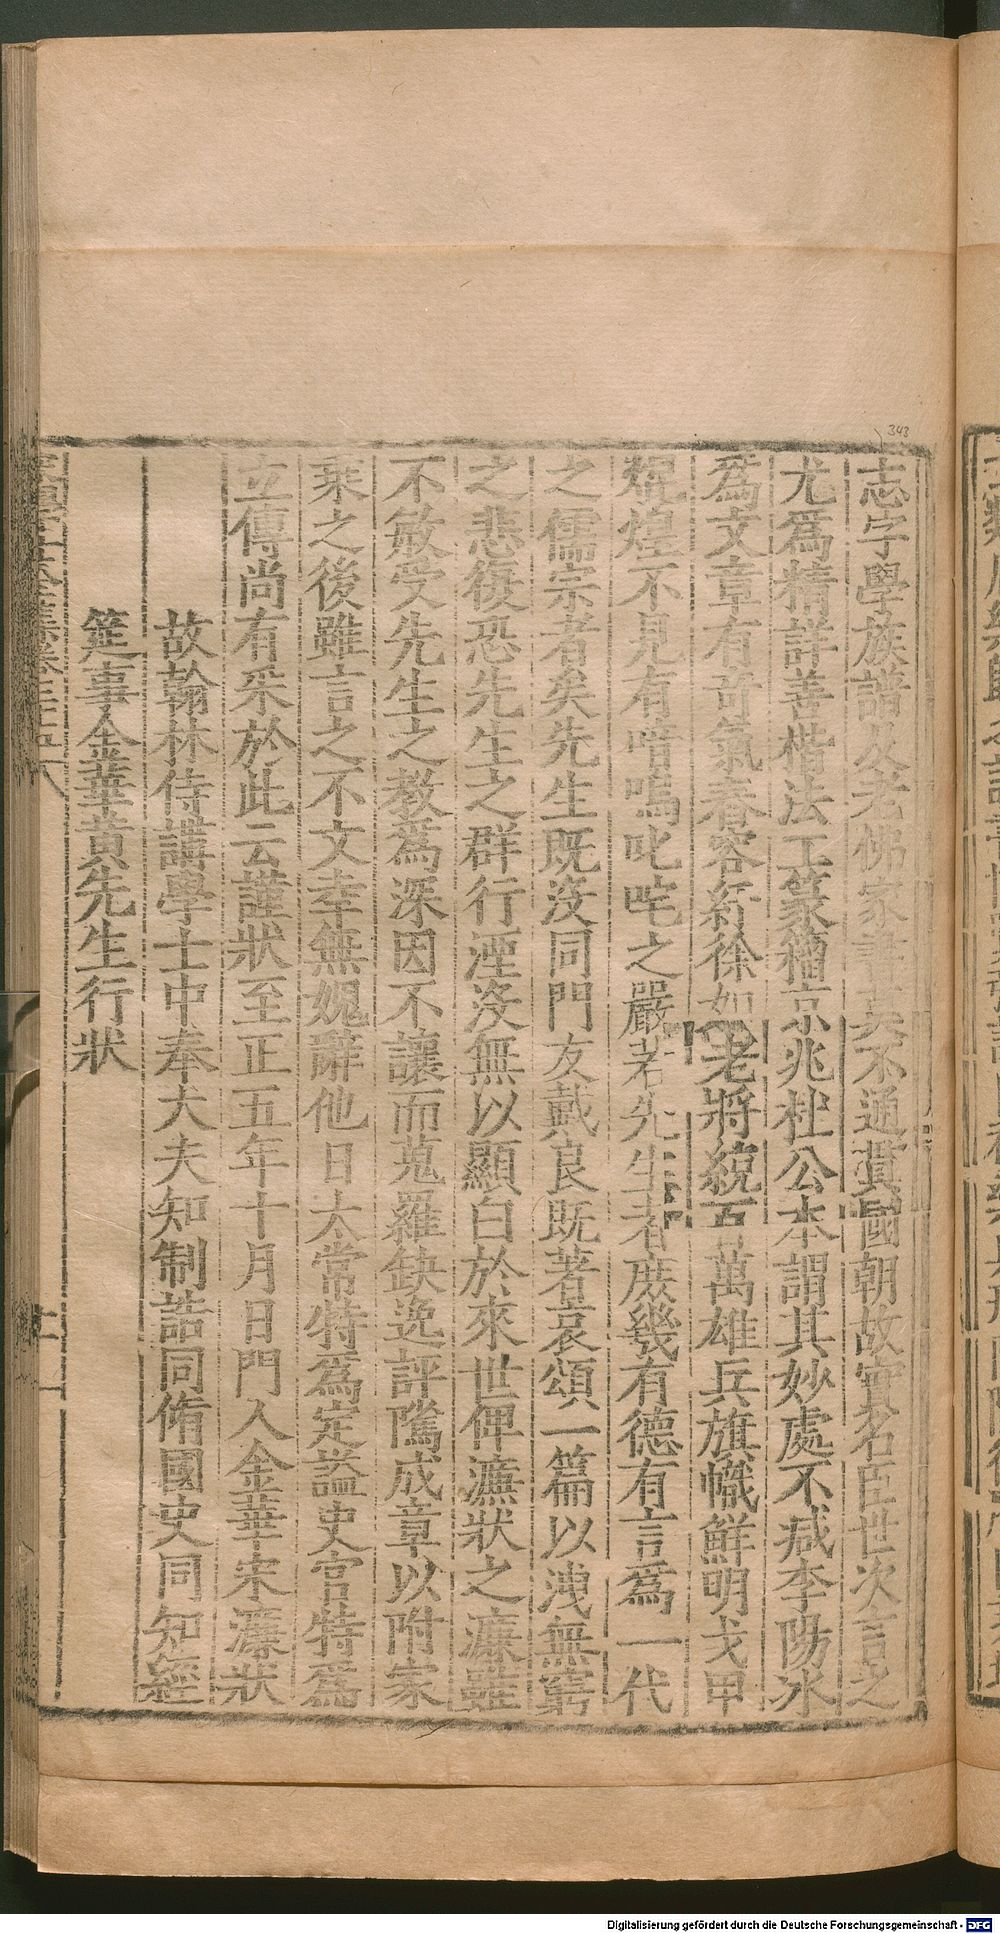 志字學族譜及老佛家書莫不通貫國朝故實名臣世次言之
尤爲精詳善楷法工篆籀京兆杜公本謂其妙處不減李陽冰
爲文章有奇氣舂容紆徐如老將統百萬雄兵旗幟鮮明戈甲
焜煌不見有喑嗚叱咤之嚴若先生者庶幾有德有言爲一代
之儒宗者矣先生既沒同門友戴良既著哀頌一篇以洩無窮
之悲復恐先生之群行湮沒無以顯白於來世俾濂狀之濂雖
不敏受先生之教爲深因不讓而蒐羅缺逸評隲成章以附家
乘之後雖言之不文幸無媿辭他日太常特爲定謚史官特爲
立傳尚有采於此云謹狀至正五年十月日門人金華宋濂狀
故翰林侍講學士中奉大夫知制誥同脩國史同知經
筵事金華黃先生行狀
343
Digitalisierung gefördert durch die Deutsche Forschungsgemeinschaft - DFG